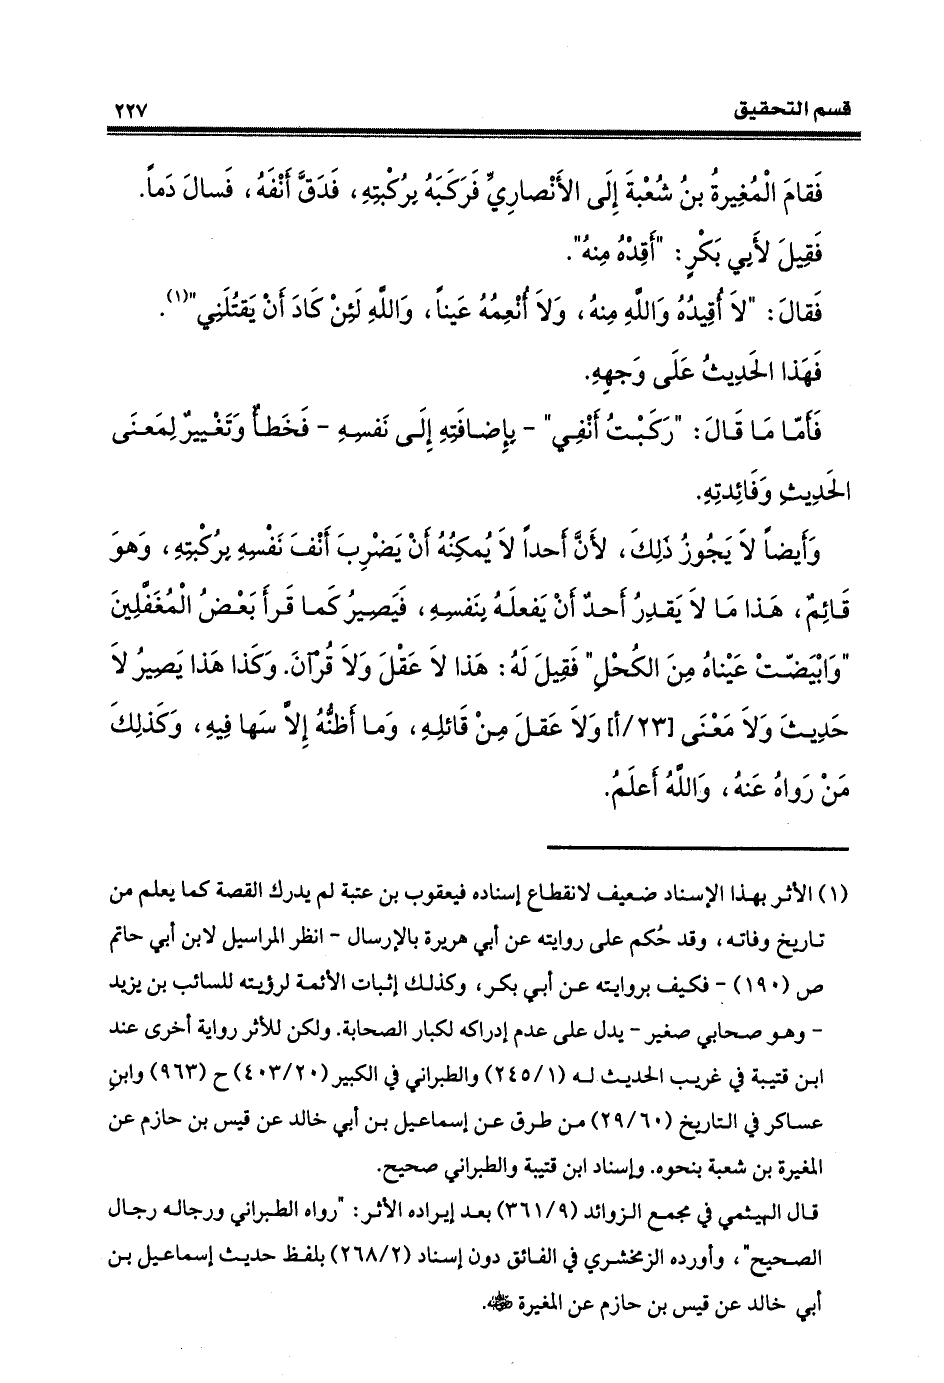 قسم التحقيق ٢٢٧
فَقامَ الْمُغيرةُ بنُ شُعْبَةَ إِلَى الأَنْصارِيِّ فَرَكَبَهُ بِرُكْبتِهِ، فَدَقَّ أَنْفَهُ، فَسالَ دَماً.
فَقِيلَ لأَبِي بَكْرٍ: "أَقِدْهُ مِنهُ".
فَقالَ: "لاَ أُقِيدُهُ وَاللَّهِ مِنهُ، وَلاَ أُنْعِمُهُ عَيناً، وَاللَّهِ لَئِنْ كَادَ أَنْ يَقتُلَنِي"(١).
فَهَذا الحَدِيثُ عَلَى وَجهِهِ.
فَأَمّا مَا قَالَ: "رَكَبْتُ أَنْفِي" – بِإِضافَتِهِ إِلَى نَفسِهِ – فَخَطأٌ وَتَغْييرٌ لِمَعنَى
الحَدِيثِ وَفَائِدتِهِ.
وَأَيضاً لاَ يَجُوزُ ذَلِكَ، لأَنَّ أَحداً لاَ يُمكِنُهُ أَنْ يَضْرِبَ أَنْفَ نَفْسِهِ بِرُكْبتِهِ، وَهوَ
قَائِمٌ، هَذا مَا لاَ يَقدِرُ أَحدٌ أَنْ يَفعلَهُ بِنَفسِهِ، فَيَصِيرُ كَما قَرأَ بَعْضُ الْمُغَفَّلِينَ
"وَابْيَضّتْ عَيْناهُ مِنَ الكُحْلِ" فَقِيلَ لَهُ: هَذا لاَ عَقْلَ وَلاَ قُرْآنَ. وَكَذا هَذا يَصِيرُ لاَ
حَدِيثَ وَلاَ مَعْنَى [٢٣/أ] وَلاَ عَقلَ مِنْ قَائلِهِ، وَما أَظنُّهُ إِلاَّ سَها فِيهِ، وَكَذلِكَ
مَنْ رَواهُ عَنهُ، وَاللَّهُ أَعلَمُ.
(١) الأثر بهذا الإسناد ضعيف لانقطاع إسناده فيعقوب بن عتبة لم يدرك القصة كما يعلم من
تاريخ وفاته، وقد حُكم على روايته عن أبي هريرة بالإرسال – انظر المراسيل لابن أبي حاتم
ص (١٩٠) – فكيف بروايته عن أبي بكر، وكذلك إثبات الأئمة لرؤيته للسائب بن يزيد
– وهو صحابي صغير – يدل على عدم إدراكه لكبار الصحابة. ولكن للأثر رواية أخرى عند
ابن قتيبة في غريب الحديث له (٢٤٥/١) والطبراني في الكبير (٤٠٣/٢٠) ح (٩٦٣) وابن
عساكر في التاريخ (٢٩/٦٠) من طرق عن إسماعيل بن أبي خالد عن قيس بن حازم عن
المغيرة بن شعبة بنحوه. وإسناد ابن قتيبة والطبراني صحيح.
قال الهيثمي في مجمع الزوائد (٣٦١/٩) بعد إيراده الأثر: "رواه الطبراني ورجاله رجال
الصحيح"، وأورده الزمخشري في الفائق دون إسناد (٢٦٨/٢) بلفظ حديث إسماعيل بن
أبي خالد عن قيس بن حازم عن المغيرة ﵁.